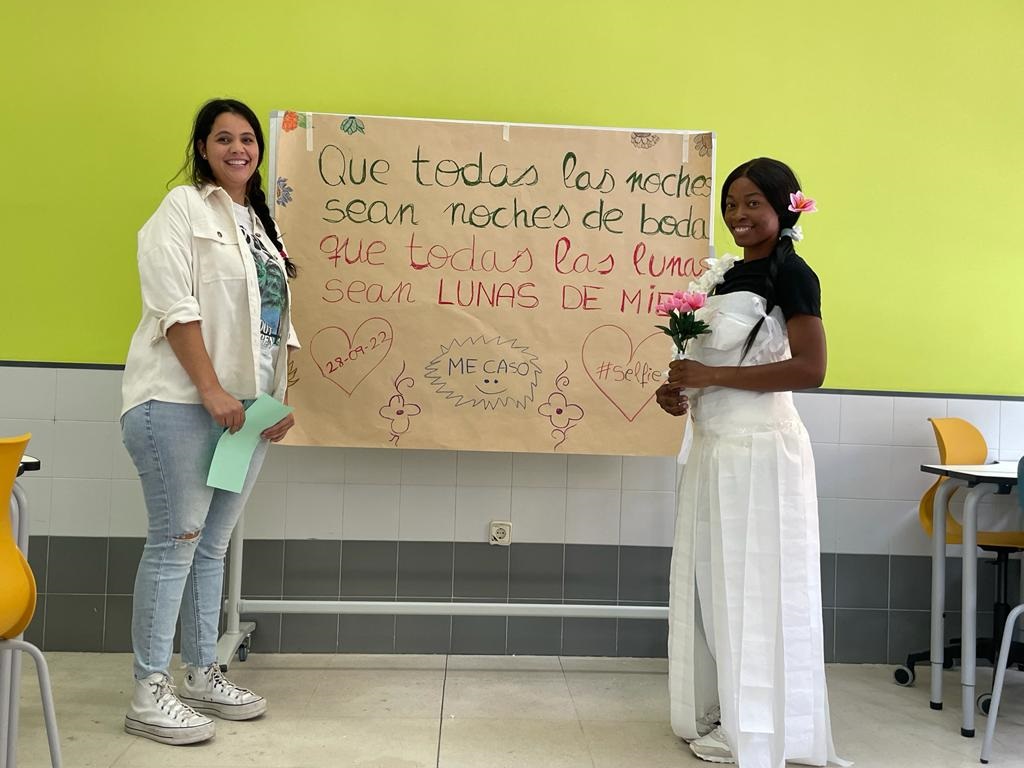 Que todas las noches
sean noches de boda
que todas las lunas
sean LUNAS DE MIE
28-09-22
ME CASO
#selfie